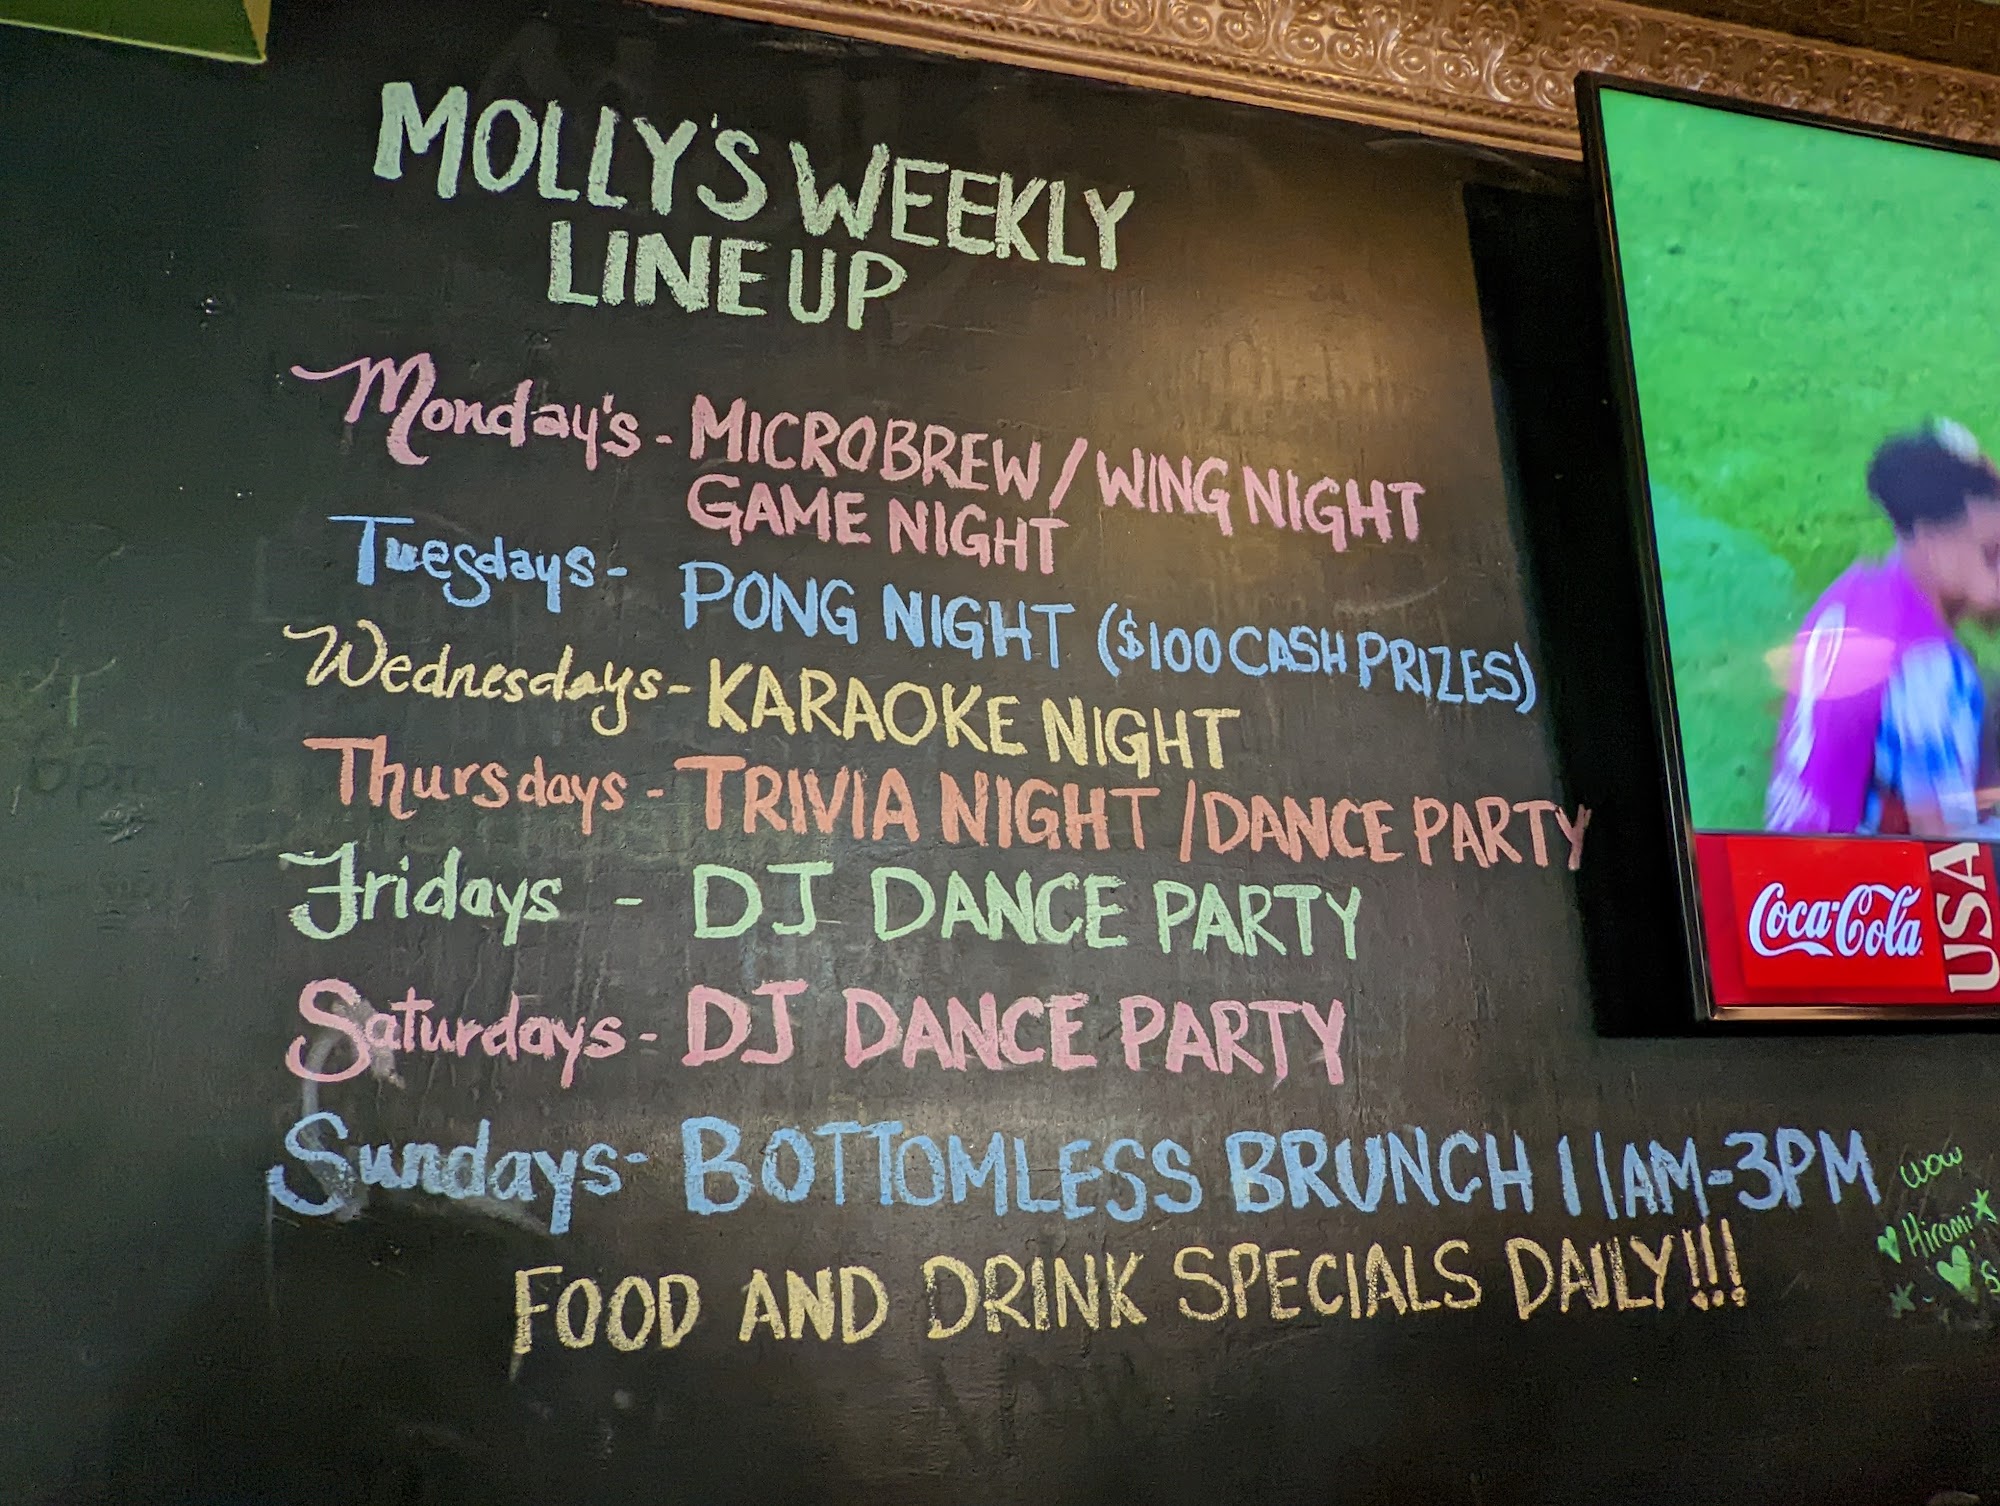 MOLLY'S WEEKLY
LINE UP
Monday's - MICROBREW / WING NIGHT
GAME NIGHT
Tuesdays - PONG NIGHT ($100 CASH PRIZES)
Wednesdays - KARAOKE NIGHT
Thursdays - TRIVIA NIGHT / DANCE PARTY
Fridays - DJ DANCE PARTY
Saturdays - DJ DANCE PARTY
Sundays - BOTTOMLESS BRUNCH 11AM-3PM
FOOD AND DRINK SPECIALS DAILY!!!
wow
Hiromi
Coca-Cola
USA